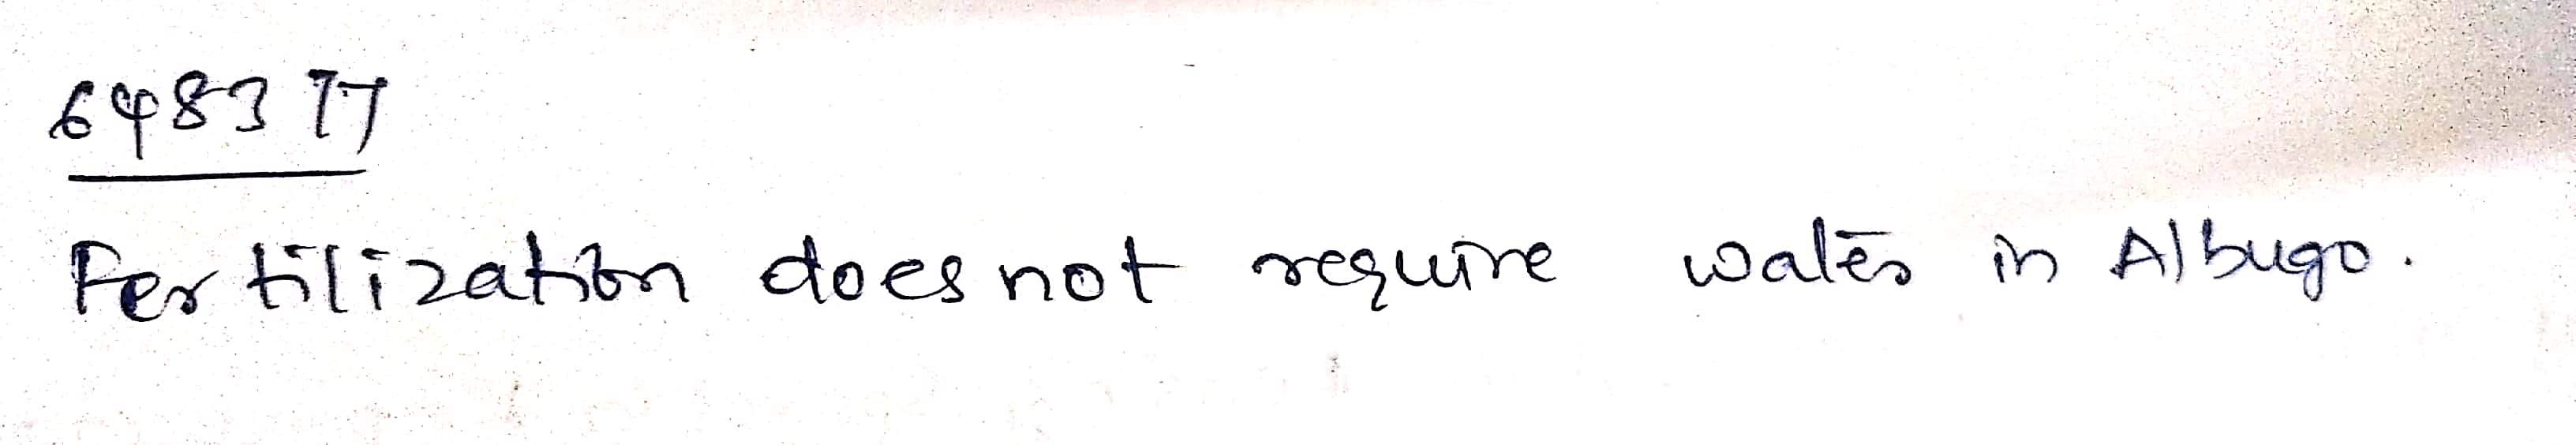 648377
Fertilization does not require water in Albugo.